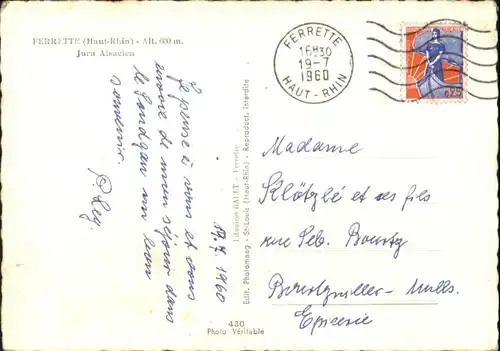 FERRETTE (Haut-Rhin) - Alt. 600 m.
Jura Alsacien
FERRETTE
16H30
19-7
1960
HAUT-RHIN
0,25
Je pense à vous et vous
envoie de mon séjour dans
le Sundgau un bon
souvenir.
P. Ley.
19.7.1960
Librairie GAULT - Ferrette
Edit. Photomag - St-Louis (Haut-Rhin) - Reproduct. interdite
Madame
Klötzlé et ses fils
rue Seb. Bourtz
Bourtzwiller-Mulh.
Epicerie
430
Photo Véritable